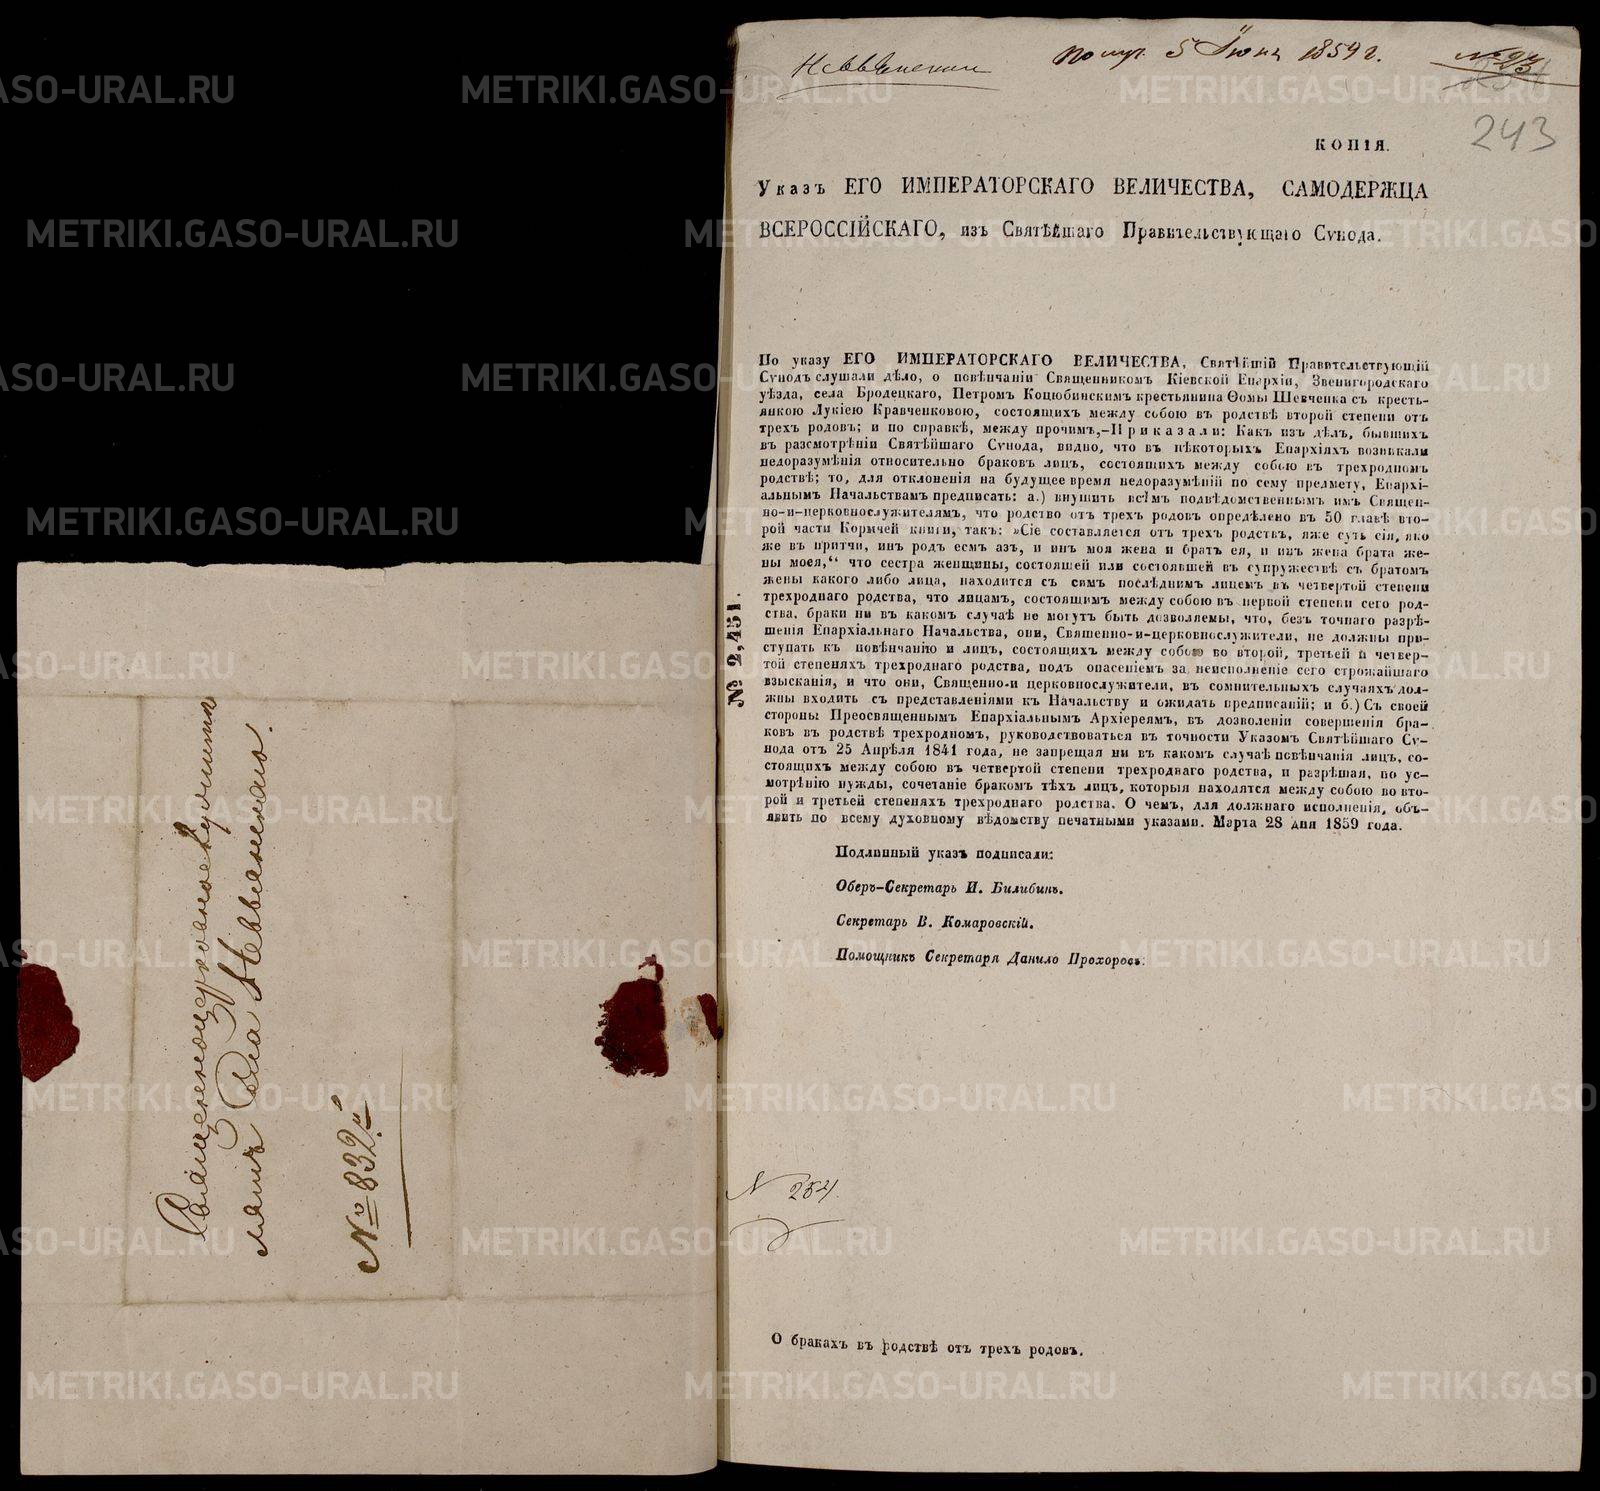 Священноцерковнослужите
лямъ Села Невьянскаго.
№ 832й
Невьянскии
Получ. 5 Іюня 1859 г.
243
КОПІЯ.
Указъ ЕГО ИМПЕРАТОРСКАГО ВЕЛИЧЕСТВА, САМОДЕРЖЦА
ВСЕРОССІЙСКАГО, изъ Святѣйшаго Правительствующаго Сѵнода.
По указу ЕГО ИМПЕРАТОРСКАГО ВЕЛИЧЕСТВА, Святѣйшій Правительствующій
Сѵнодъ слушали дѣло, о повѣнчаніи Священникомъ Кіевской Епархіи, Звенигородскаго
уѣзда, села Бродецкаго, Петромъ Коцюбинскимъ крестьянина Ѳомы Шевченка съ кресть-
янкою Лукіею Кравченковою, состоящихъ между собою въ родствѣ второй степени отъ
трехъ родовъ; и по справкѣ, между прочимъ,—Приказали: Какъ изъ дѣлъ, бывшихъ
въ разсмотрѣніи Святѣйшаго Сѵнода, видно, что въ нѣкоторыхъ Епархіяхъ возникали
недоразумѣнія относительно браковъ лицъ, состоящихъ между собою въ трехродномъ
родствѣ; то, для отклоненія на будущее время недоразумѣній по сему предмету, Епархі-
альнымъ Начальствамъ предписать: а.) внушить всѣмъ подвѣдомственнымъ имъ Священ-
но-и-церковнослужителямъ, что родство отъ трехъ родовъ опредѣлено въ 50 главѣ вто-
рой части Кормчей книги, такъ: »Сіе составляется отъ трехъ родствъ, яже суть сія, яко
же въ притчи, инъ родъ есмъ азъ, и инъ моя жена и братъ ея, и инъ жена брата же-
ны моея,“ что сестра женщины, состоящей или состоявшей въ супружествѣ съ братомъ
жены какого либо лица, находится съ симъ послѣднимъ лицемъ въ четвертой степени
трехроднаго родства, что лицамъ, состоящимъ между собою въ первой степени сего род-
ства, браки ни въ какомъ случаѣ не могутъ быть дозволяемы, что, безъ точнаго разрѣ-
шенія Епархіальнаго Начальства, они, Священно-и-церковнослужители, не должны при-
ступать къ повѣнчанію и лицъ, состоящихъ между собою во второй, третьей и четвер-
той степеняхъ трехроднаго родства, подъ опасеніемъ за неисполненіе сего строжайшаго
взысканія, и что они, Священно-и церковнослужители, въ сомнительныхъ случаяхъ дол-
жны входить съ представленіями къ Начальству и ожидать предписаній; и б.) Съ своей
стороны Преосвященнымъ Епархіальнымъ Архіереямъ, въ дозволеніи совершенія бра-
ковъ въ родствѣ трехродномъ, руководствоваться въ точности Указомъ Святѣйшаго Сѵ-
нода отъ 25 Апрѣля 1841 года, не запрещая ни въ какомъ случаѣ повѣнчанія лицъ, со-
стоящихъ между собою въ четвертой степени трехроднаго родства, и разрѣшая, по ус-
мотрѣнію нужды, сочетаніе бракомъ тѣхъ лицъ, которыя находятся между собою во вто-
рой и третьей степеняхъ трехроднаго родства. О чемъ, для должнаго исполненія, объ-
явить по всему духовному вѣдомству печатными указами. Марта 28 дня 1859 года.
№ 2,451.
Подлинный указъ подписали:
Оберъ-Секретарь И. Билибинъ.
Секретарь В. Комаровскій.
Помощникъ Секретаря Данило Прохоровъ.
N 254
О бракахъ въ родствѣ отъ трехъ родовъ.
METRIKI.GASO-URAL.RU